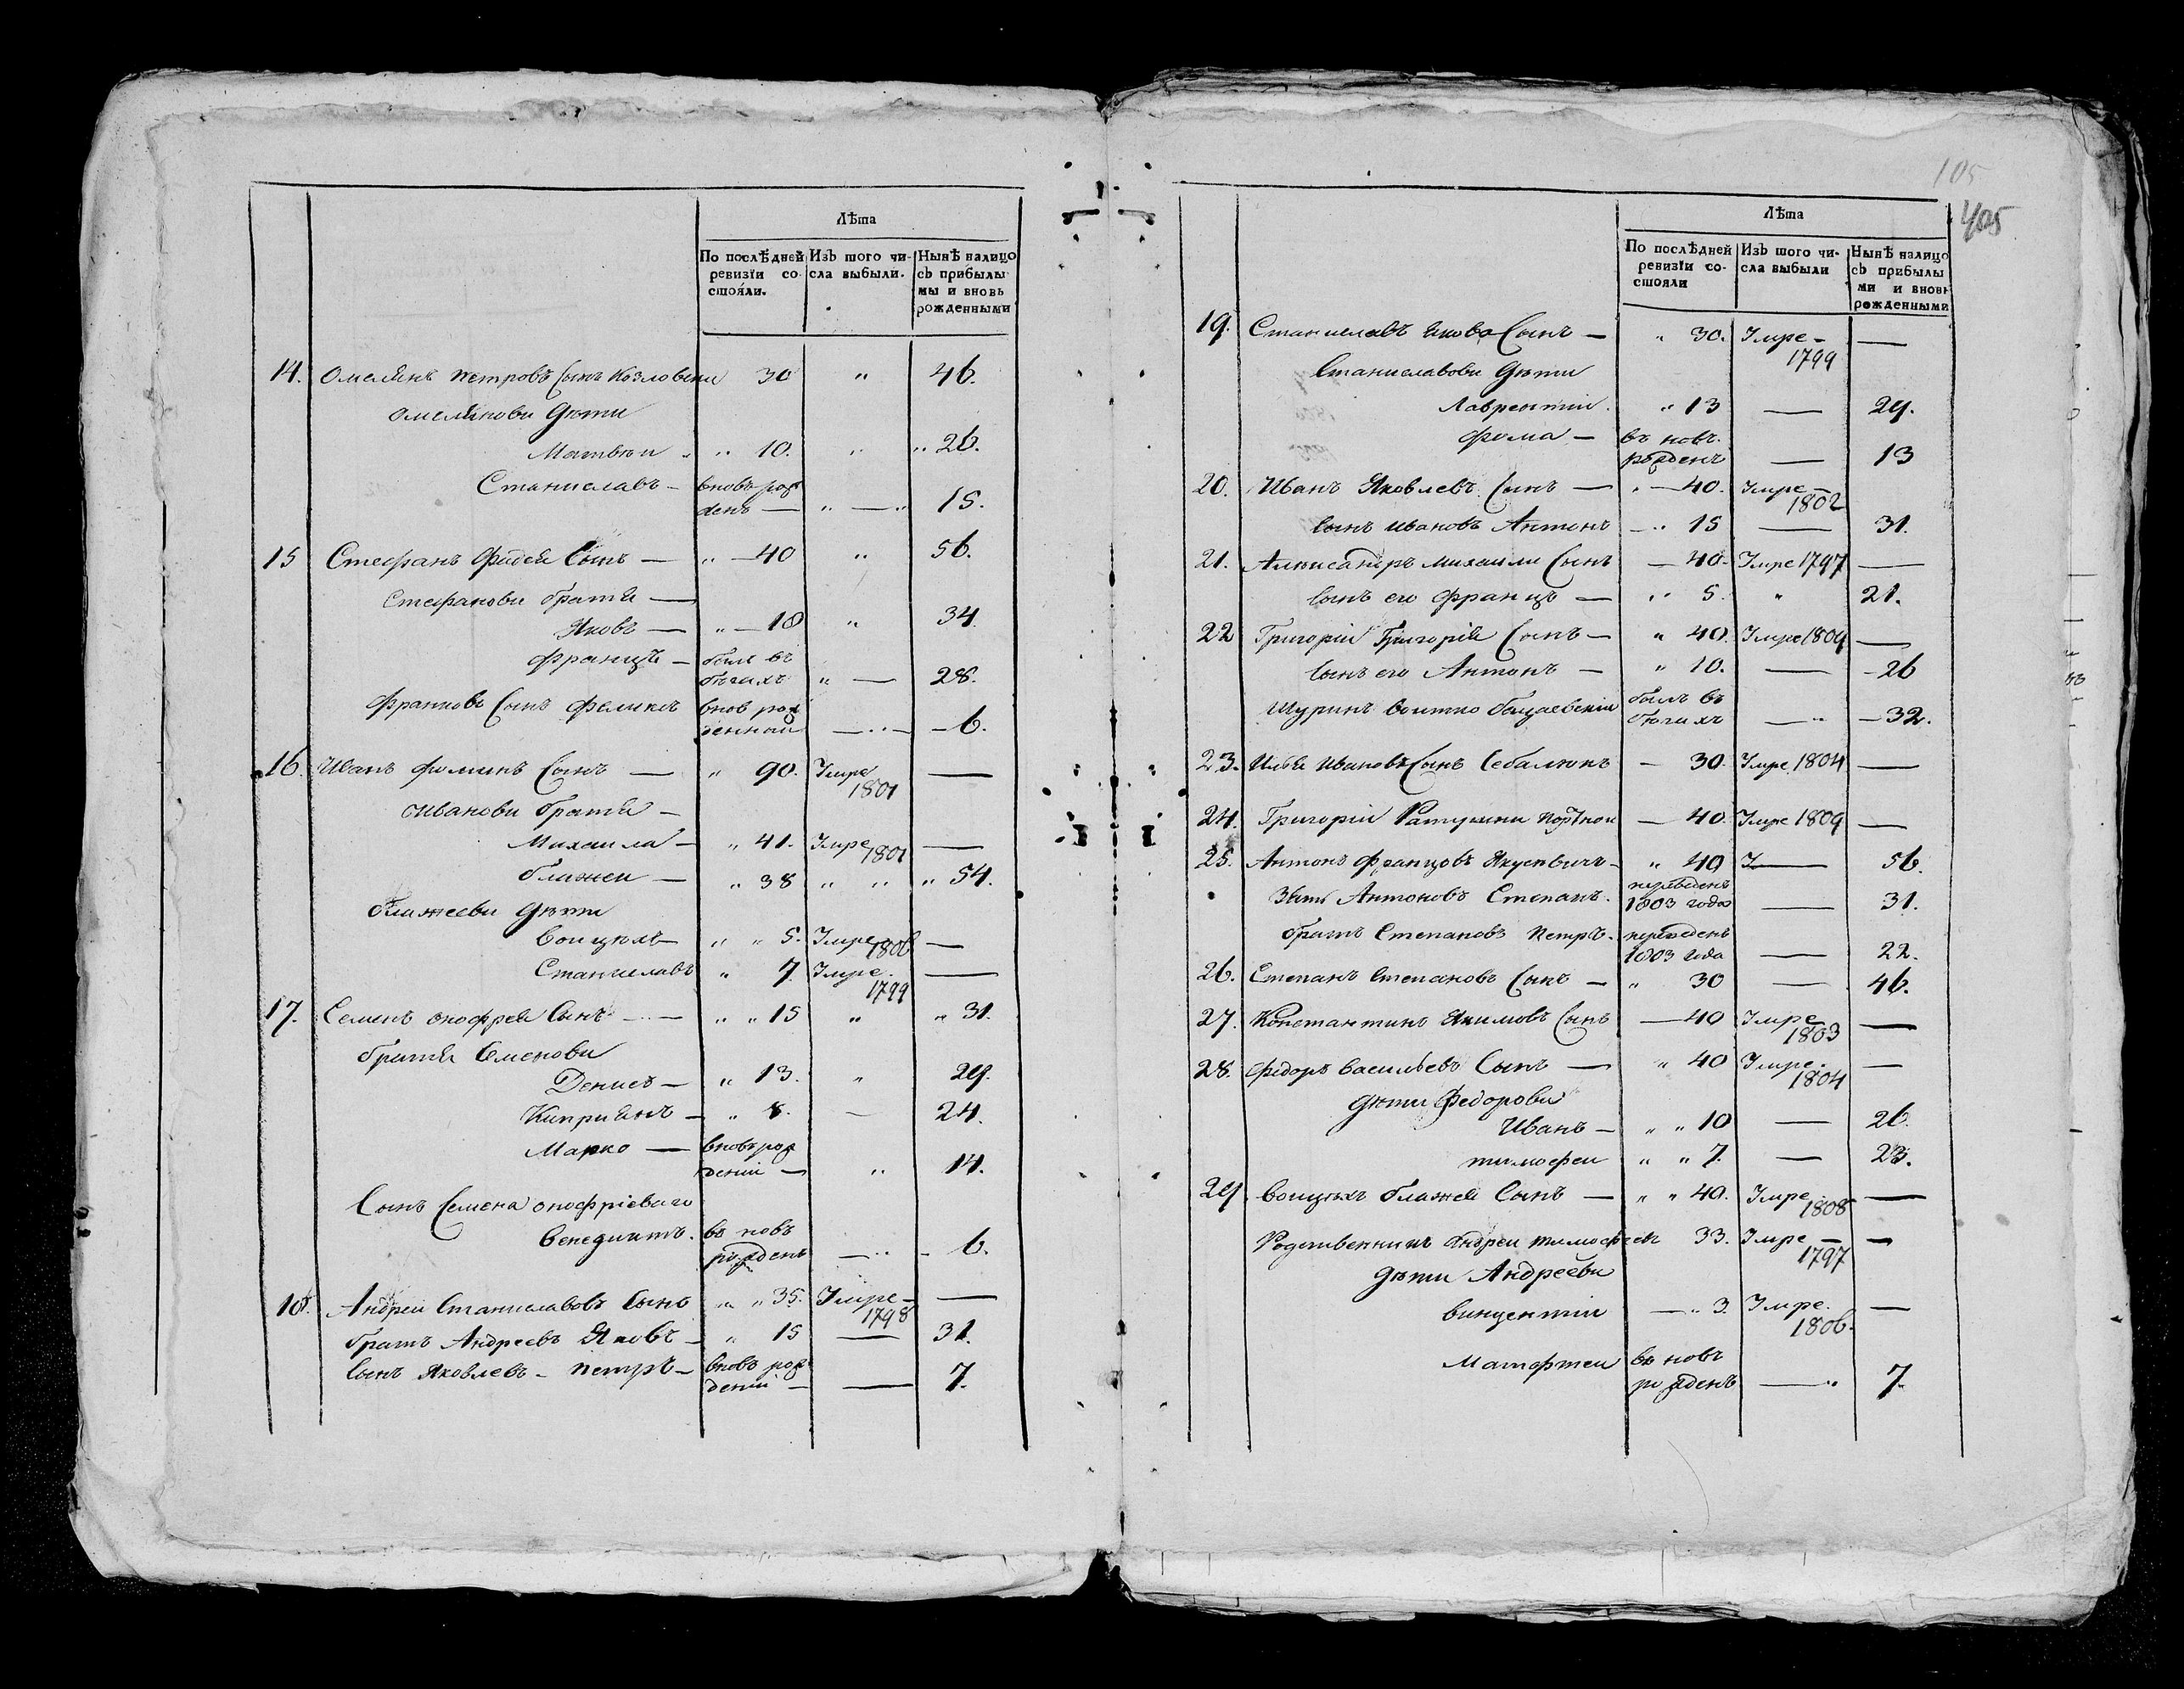 Лѣта
По послѣдней ревизіи состояли.
Изъ того числа выбыли.
Нынѣ налицо съ прибылыми и вновь рожденными
14. Омелянъ петровъ Сынъ Козловски 30 " 46.
Омелянови дѣти
Матвеи " " 10. " " 26.
Станиславъ — вновь рожденъ — " — " 15.
15 Стефанъ фадея Сынъ — " — 40 " 56.
Стефанови братя —
Яковъ — " — 18 " 34
францъ — былъ въ бѣгахъ " — 28.
франковъ Сынъ феликъ вновь рожденнои — " — — 6.
16. Иванъ фоминъ Сынъ — " 90. Умре 1801 —
Иванови братя —
Михаила — " 41. Умре 1801 —
блажеи — " 38 " " " 54.
блажееви дѣти
Воицехъ — " " 5. Умре 1806 —
Станиславъ " 7 Умре. 1799 —
17. Семенъ онофрея Сынъ — " " 15 " " 31.
братя Семенови
Денисъ — " 13. " 29.
Киприянъ — " 8. — 24.
Марко — вновь рождении — " 14.
Сынъ Семена онофріеваго
Венедиктъ. въ новъ рожденъ — " — 6.
18. Андреи Станиславовъ Сынъ " " 35. Умре — 1798 —
братъ Андреевъ Яковъ — " 15 — 31.
Сынъ Яковлевъ — петръ — вновь рождении — — 7.
105
405
Лѣта
По послѣдней ревизіи состояли
Изъ того числа выбыли
Нынѣ налицо съ прибылыми и вновь рожденными
19. Станиславъ Якова Сынъ — " 30. Умре — 1799 —
Станиславови дѣти
Лаврентіи. " 13 — 29.
фома — въ новъ рожденъ — 13
20. Иванъ Яковлевъ Сынъ — " — 40. Умре — 1802
Сынъ Ивановъ Антонъ — " 15 — 31.
21. Александръ михаили Сынъ — 40 — Умре 1797 —
Сынъ его францъ — " 5. " 21.
22 Григоріи Григорія Сынъ — " 40. Умре 1809 —
Сынъ его Антонъ — " 10. — — 26
Шуринъ воитко былъ въ бѣгахъ — " — 32.
23. Илья Ивановъ Сынъ Себалюкъ — 30. Умре 1804 —
24. Григоріи портнои — 40. Умре 1809 —
25. Антонъ францовъ — " 40 — 56.
Зять Антоновъ Степанъ. переведенъ 1803 года — 31.
братъ Степановъ петръ. переведенъ 1803 года — 22.
26. Степанъ Степановъ Сынъ — " 30 — 46.
27. Константинъ Якимовъ Сынъ — 40 Умре 1803 —
28. федоръ Васильевъ Сынъ — " 40 Умре. 1804 —
дѣти федорови
Иванъ — " " 10 — 26.
тимофеи " " 7. — 23.
29 воицехъ блажея Сынъ — " " 40. Умре 1808 —
Родственникъ андреи тимофеевъ 33. Умре — 1797 —
дѣти Андрееви
винцентіи — " 3. Умре. 1806. —
Матфтеи въ новъ рожденъ — " 7.